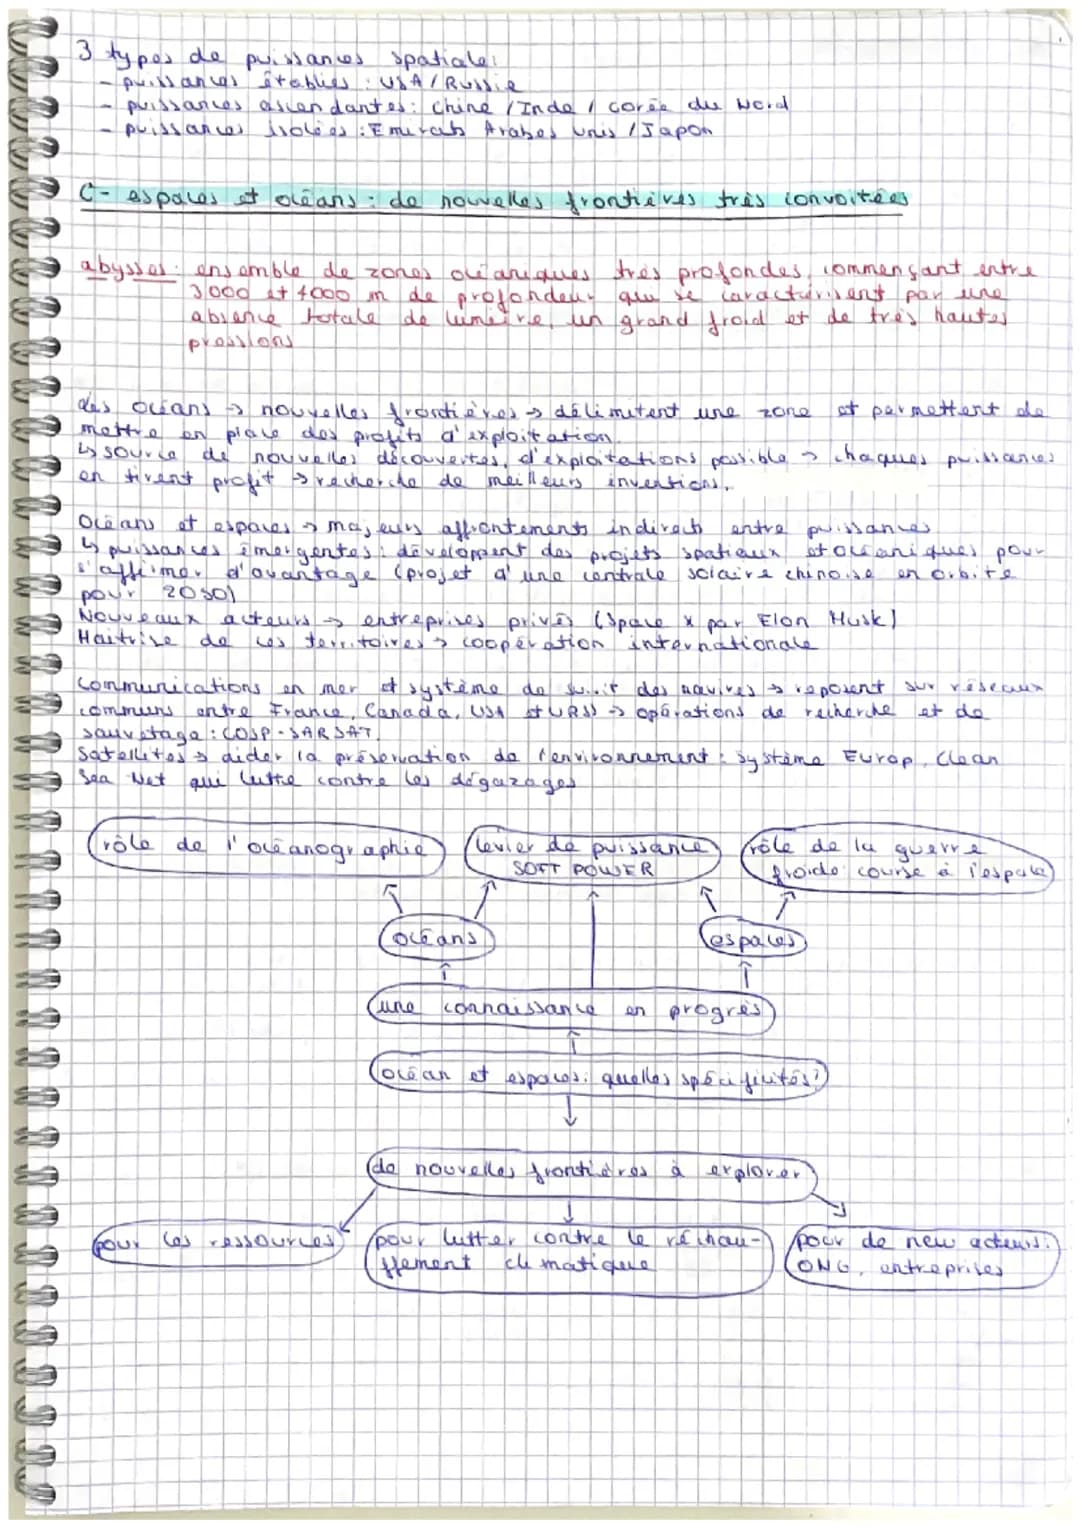 3 types de puissances spatiale:
- puissances établies : USA / Russie
- puissances ascendantes : Chine / Inde / Corée du Nord
- puissances isolées : Emirats Arabes Unis / Japon
C- espaces et océans : de nouvelles frontières très convoitées
abysses : ensemble de zones océaniques très profondes, commençant entre
3000 et 4000 m de profondeur qui se caractérisent par une
absence totale de lumière, un grand froid et de très hautes
pressions
des océans → nouvelles frontières → délimitent une zone et permettent de
mettre en place des profits d'exploitation.
↳ source de nouvelles découvertes, d'exploitations possible → chaques puissances
en tirent profit → recherche de meilleurs inventions.
Océans et espaces → majeurs affrontements indirects entre puissances
↳ puissances émergentes : développent des projets spatiaux et océaniques pour
s'affirmer d'avantage (projet d'une centrale solaire chinoise en orbite
pour 2050)
Nouveaux acteurs → entreprises privés (Space x par Elon Musk)
Maitrise de ces territoires → coopération internationale
Communications en mer et système de suivit des navires → reposent sur réseaux
communs entre France, Canada, USA et URSS → opérations de recherche et de
sauvetage : COSP-SARSAT.
Satellites → aider la préservation de l'environnement : système Europ, Clean
Sea Net qui lutte contre les dégazages
rôle de l'océanographie
levier de puissance
SOFT POWER
rôle de la guerre
froide : course à l'espace
océans
espaces
une connaissance en progrès
océan et espaces : quelles spécificités?
de nouvelles frontières à explorer
pour les ressources
pour lutter contre le réchau-
ffement climatique
pour de new acteurs :
ONG, entreprises